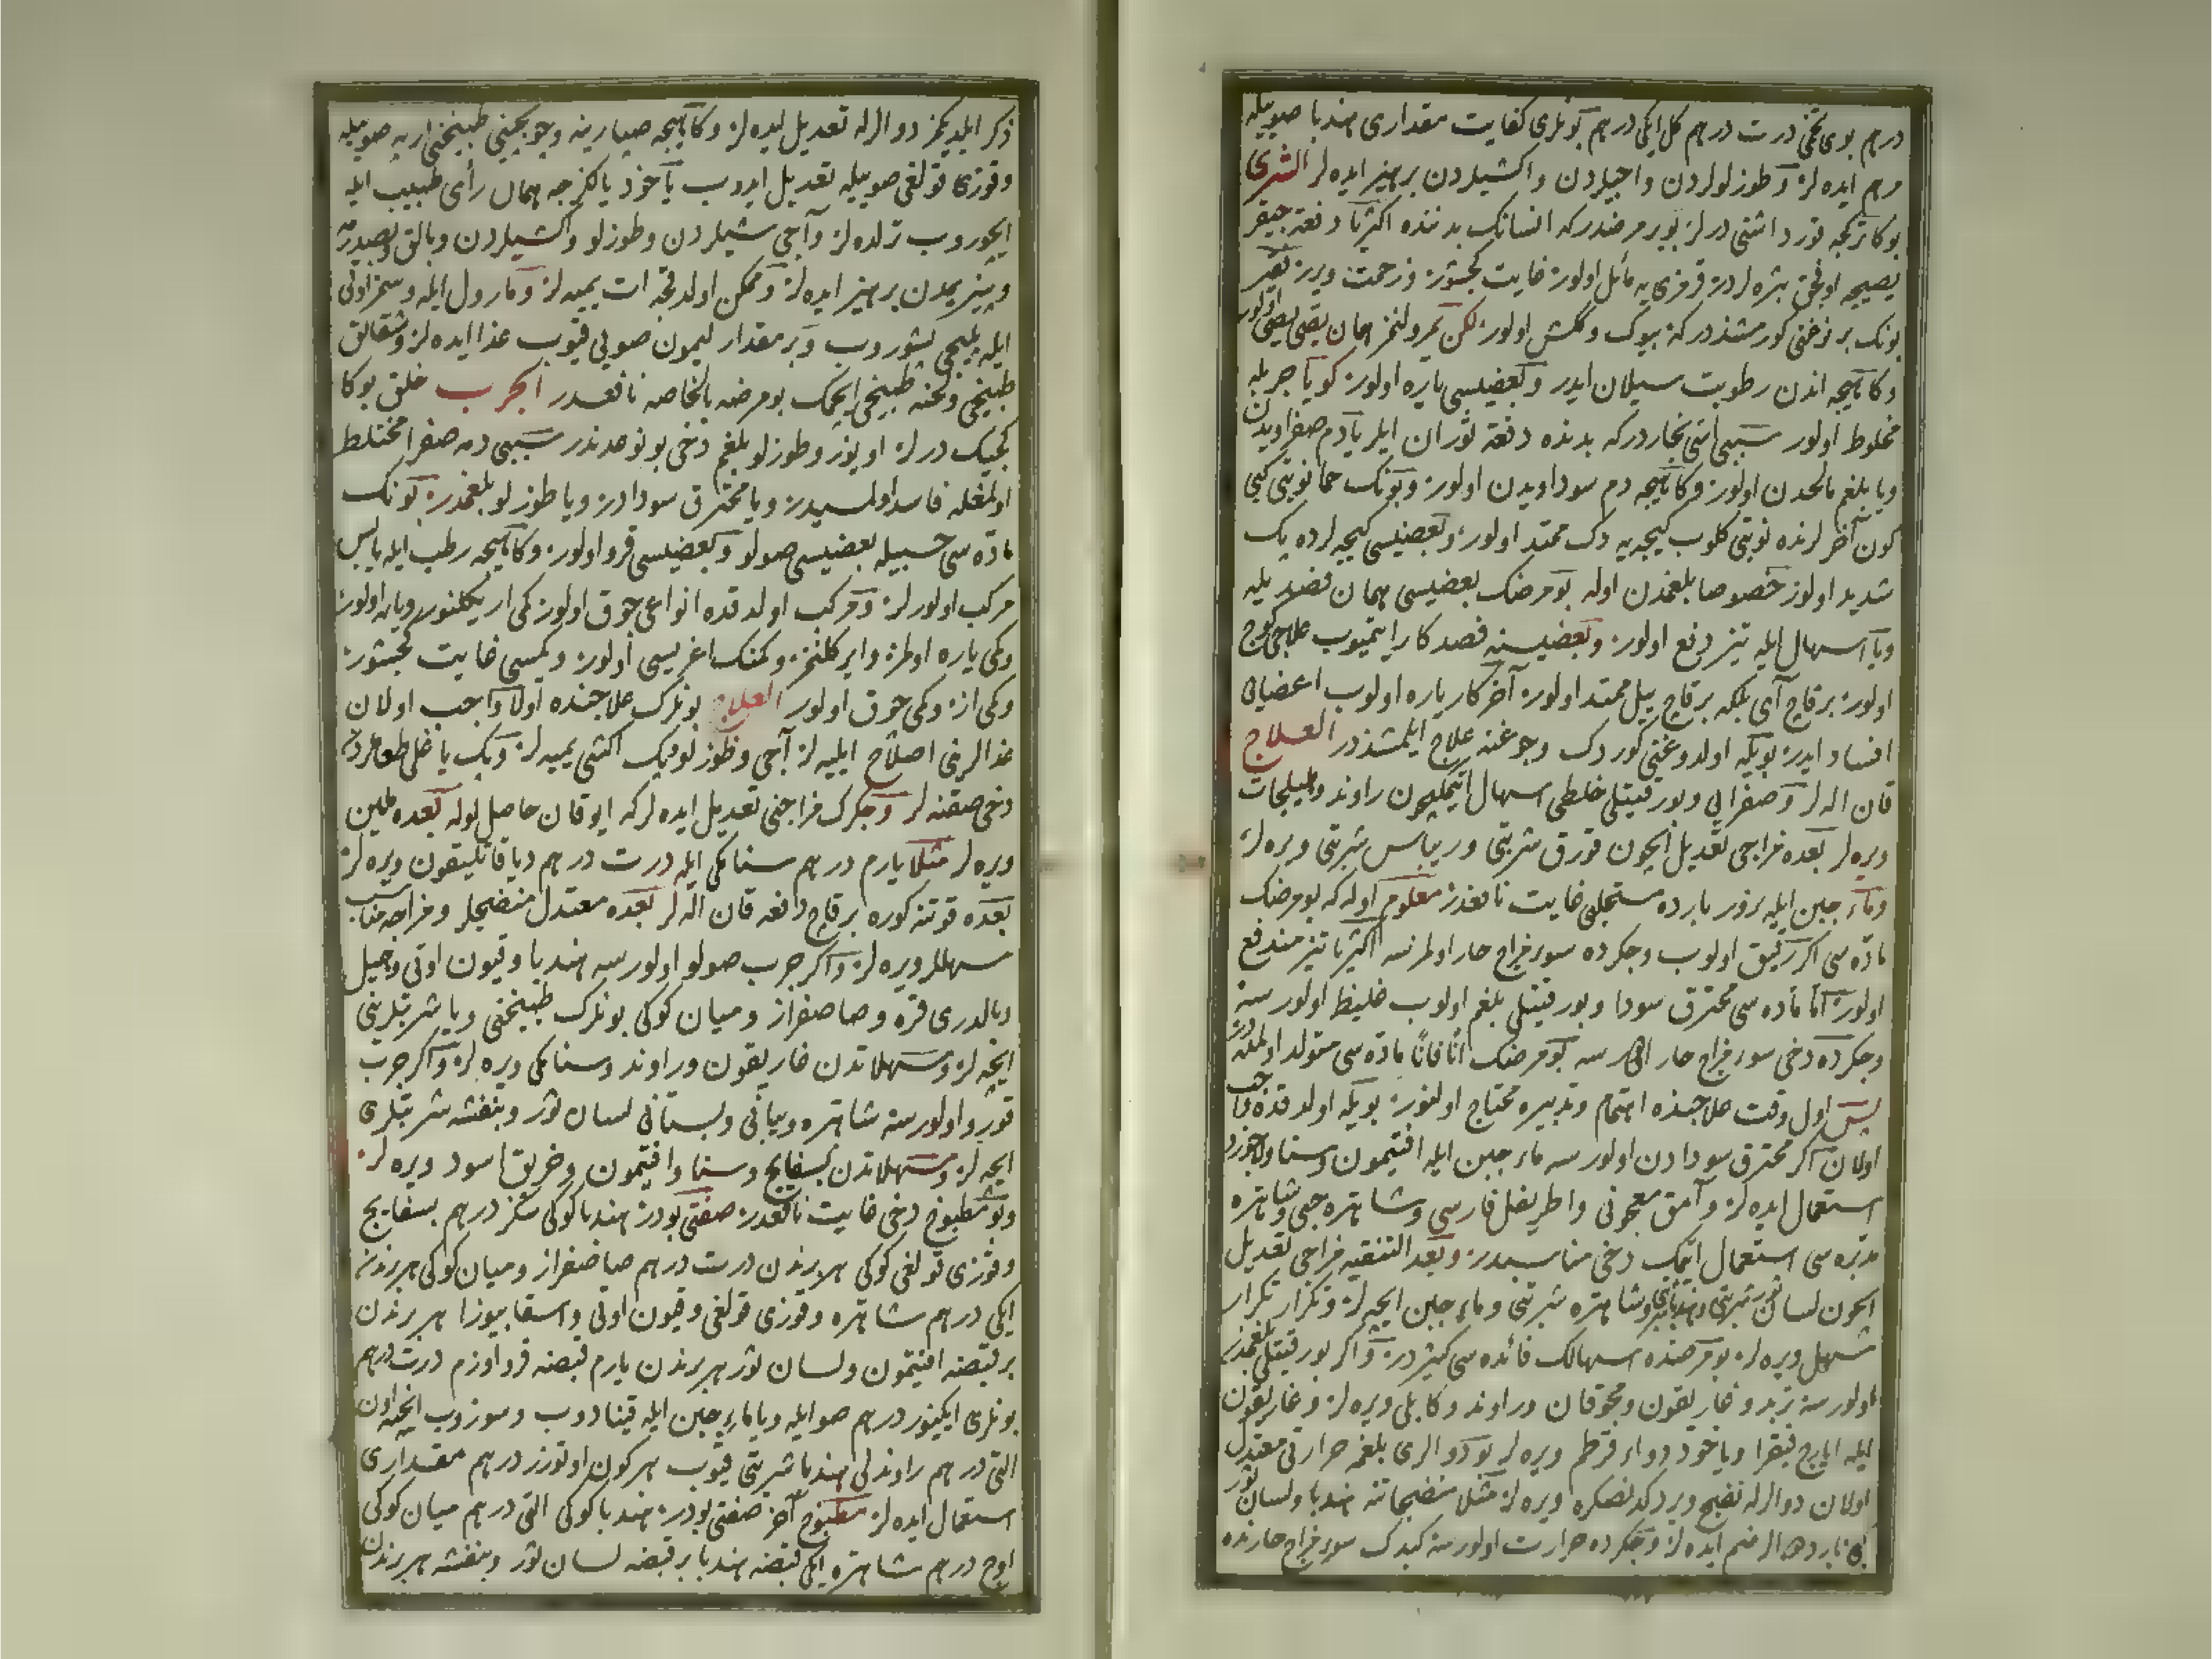 درهم بوی تخمی درت درهم کل ایکی درهم بونلری کفایت مقداری هندبا صوییله
مرهم ایده لر و طوزلولردن واجیلردن واکشیلردن پرهیز ایده لر الشری
بوکا ترکجه قورداشنی درلر بو بر مرضدرکه انسانک بدننده اکثریا دفعة چیقر
یصیجه اوفجق بثره لردر قرمزی یه مائل اولور غایت کجشور و زحمت ویرر
بونک بر نوخنی کورمشذدرکه بیوک و دکش اولور لکن همان یصی یصی اولور
وکاهیجه اندن رطوبت سیلان ایدر وبعضیسی یاره اولور کویا جربله
مخلوط اولور سببی اسّی بخاردرکه بدنده دفعة ثوران ایلر یا دم صفراویدن
ویا بلغم مالحدن اولور وکاهیجه دم سوداویدن اولور وبونک حما نوبتی کبی
کون آخرلرنده نوبتی کلوب کیجه یه دک ممتد اولور وبعضیسی کیجه لرده پک
شدید اولور خصوصا بلغمدن اوله بو مرضک بعضیسی همان فصد یله
ویا اسهال ایله تیز دفع اولور وبعضیسنه فصد کارایتمیوب علاجی کوج
اولور برقاج آی بلکه برقاج ییل ممتد اولور آخر کار یاره اولوب اعضایی
افساد ایدر بویله اولدوغنی کوردک وجوغنه علاج ایلمشذدر العلاج
قان اله لر وصفرایی وبورقیتلی خلطی اسهال ایتمکیچون راوند وهلیلجات
ویره لر بعده مزاجی تعدیل ایچون قورق شربتی وریباس شربتی ویره لر
وماء جبن ایله بزور بارده مستحلبی غایت نافعدر معلوم اوله که بو مرضک
مادّه سی اکر رقیق اولوب وجکرده سوء مزاج حار اولمزسه اکثریا تیز مندفع
اولور امّا مادّه سی محترق سودا وبورقیتلی بلغم اولوب غلیظ اولورسه
وجکرده دخی سوء مزاج حار اولورسه بو مرضک آنًا فآنًا مادّه سی متولد اولمقله
پس اول وقت علاجنده اهتمام وتدبیره محتاج اولنور بویله اولدقده واجب
اولان اکر محترق سودادن اولورسه ماء جبن ایله افتیمون وسنا ولاجورد
استعمال ایده لر و معجونی واطریفل فارسی وشاهتره حبی وشاهتره
مدبره سی استعمال ایتمک دخی مناسبدر وبعد التنقیه مزاجی تعدیل
ایچون لسان ثور شربتی وهندبا وشاهتره شربتی وماء جبن ایچه لر وتکرار تکرار
مسهل ویره لر بو مرضده اسهالک فائده سی کثیردر واکر بورقیتلی بلغمدن
اولورسه تربد وغاریقون ومحوقان وراوند وکابلی ویره لر وغاریقون
ایله ایارج فیقرا ویاخود دواء قرطم ویره لر بو دوالری بلغمه حرارتی معتدل
اولان دوالرله نضج ویردکدنصکره ویره لر مثلا منضجاتنه هندبا ولسان ثور
کبی باردهالر ضم ایده لر وجکرده حرارت اولورسه کبدک سوء مزاج حارنده
ذکر ایلدیکمز دوالرله تعدیل ایده لر وکاهیجه صبارینه وچوبچینی طبیخنی اربه صوییله
وقوزی قولغی صوییله تعدیل ایدوب یاخود یالکزجه همان رأی طبیب ایله
ایچوروب ترلده لر وآجی شیلردن وطوزلو واکشیلردن وبالق وبصدرمه
وپینیریمدن پرهیز ایده لر وممکن اولدقجه ات یمیه لر ومارول ایله وسمزاوتی
ایله پلیجی بشوروب وبر مقدار لیمون صویی قیوب غذا ایده لر وشقالق
طبیخی وکنه طبیخی ایچمک بو مرضه بالخاصه نافعدر الجرب خلق بوکا
کجیک درلر اویوز وطوزلو بلغم دخی بو نوعدندر سببی دمه صفرا مختلط
اولمغله فاسد اولمسیدر ویا محترق سودادر ویا طوزلو بلغمدر بونک
مادّه سی حسبیله بعضیسی صولو وبعضیسی قرو اولور وکاهیجه رطب ایله یابس
مرکب اولورلر ومرکب اولدقده انواعی چوق اولور کمی ایریکلنور ویاره اولور
وکمی یاره اولمز وایرکلنمز وکمنک اغریسی اولور وکمیسی غایت کجشور
وکمی از وکمی چوق اولور العلاج بونلرک علاجنده اولا واجب اولان
غذالرینی اصلاح ایلیه لر آجی وطوزلو وپک اکشی یمیه لر وپک یاغلی طعاملردن
دخی صقنه لر وجکرک مزاجنی تعدیل ایده لرکه ایو قان حاصل اوله بعده ملین
ویره لر مثلا یارم درهم سنامکی ایله درت درهم دیاقاتلیقون ویره لر
بعده قوتنه کوره برقاج دفعه قان اله لر بعده معتدل منضجلر ومزاجه مناسب
مسهللر ویره لر واکر جرب صولو اولورسه هندبا وقیون اوتی وجمیل
وبالدری قره وصاصفراز ومیان کوکی بونلرک طبیخنی ویا شربتلرینی
ایچه لر ومسهلاتدن غاریقون وراوند وسنامکی ویره لر واکر جرب
قورو اولورسه شاهتره وبیانی وبستانی لسان ثور وبنفشه شربتلری
ایچه لر ومسهلاتدن بسفایج وسنا وافتیمون وخربق اسود ویره لر
وبو مطبوخ دخی غایت نافعدر صفتی بودر هندبا کوکی سکز درهم بسفایج
وقوزی قولغی کوکی هر برندن درت درهم صاصفراز ومیان کوکی هر برندن
ایکی درهم شاهتره وقوزی قولغی وقیون اوتی واسقابیوزا هر برندن
بر قبضه افتیمون ولسان ثور هر برندن یارم قبضه قرو اوزم درت درهم
بونلری ایکیوز درهم صو ایله ویا ماء جبن ایله قینادوب وسوزوب ایچنه اون
التی درهم راوندلی هندبا شربتی قیوب هر کون اوتوزر درهم مقداری
استعمال ایده لر مطبوخ آخر صفتی بودر هندبا کوکی التی درهم میان کوکی
اوچ درهم شاهتره ایکی قبضه هندبا بر قبضه لسان ثور وبنفشه هر برندن